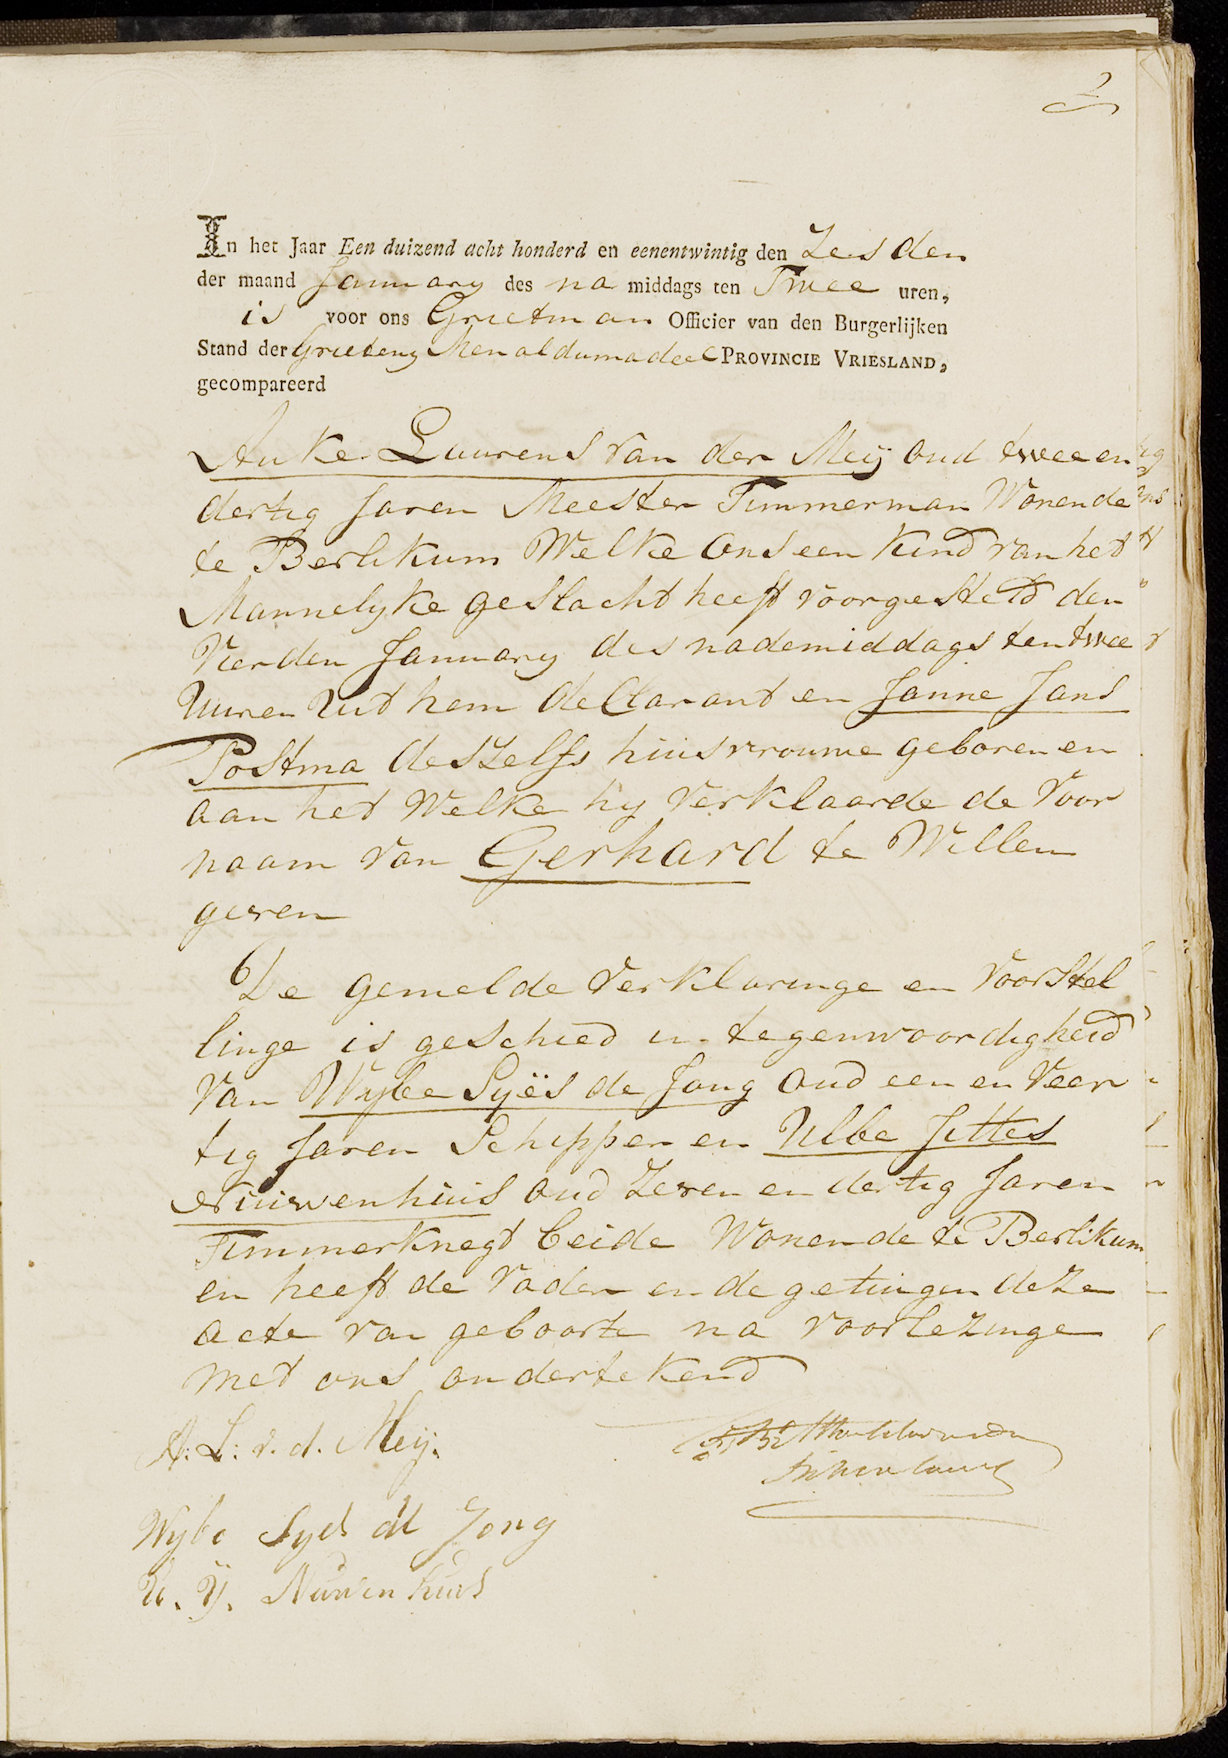 2
In het Jaar Een duizend acht honderd en eenentwintig den Zesden
der maand January des na middags ten Twee uren,
is voor ons Grietman Officier van den Burgerlijken
Stand der Grieteny Menaldumadeel PROVINCIE VRIESLAND,
gecompareerd
Auke Laurens van der Meij oud twee en
dertig Jaren Meester Timmerman Wonende
te Berlikum Welke ons een kind van het
Mannelyke geslacht heeft voorgesteld den
Vierden January des nademiddags ten twee
Uuren Uit hem declarant en Janne Jans
Postma deszelfs huisvrouwe geboren en
aan het Welke hy verklaarde de voor
naam van Gerhard te Willen
geven
De gemelde verklaringe en voorstel
linge is geschied in tegenwoordigheid
van Wybe Syës de Jong oud een en veer
tig Jaren Schipper en Ulbe Jittes
Niuwenhuis oud zeven en dertig Jaren
Timmerknegt beide Wonende te Berlikum
en heeft de vader en de getuigen deze
acte van geboorte na voorlezinge
met ons ondertekend
A: L: v. d. Meij.
Wybe Syes de Jong
U. Y. Niuwenhuis